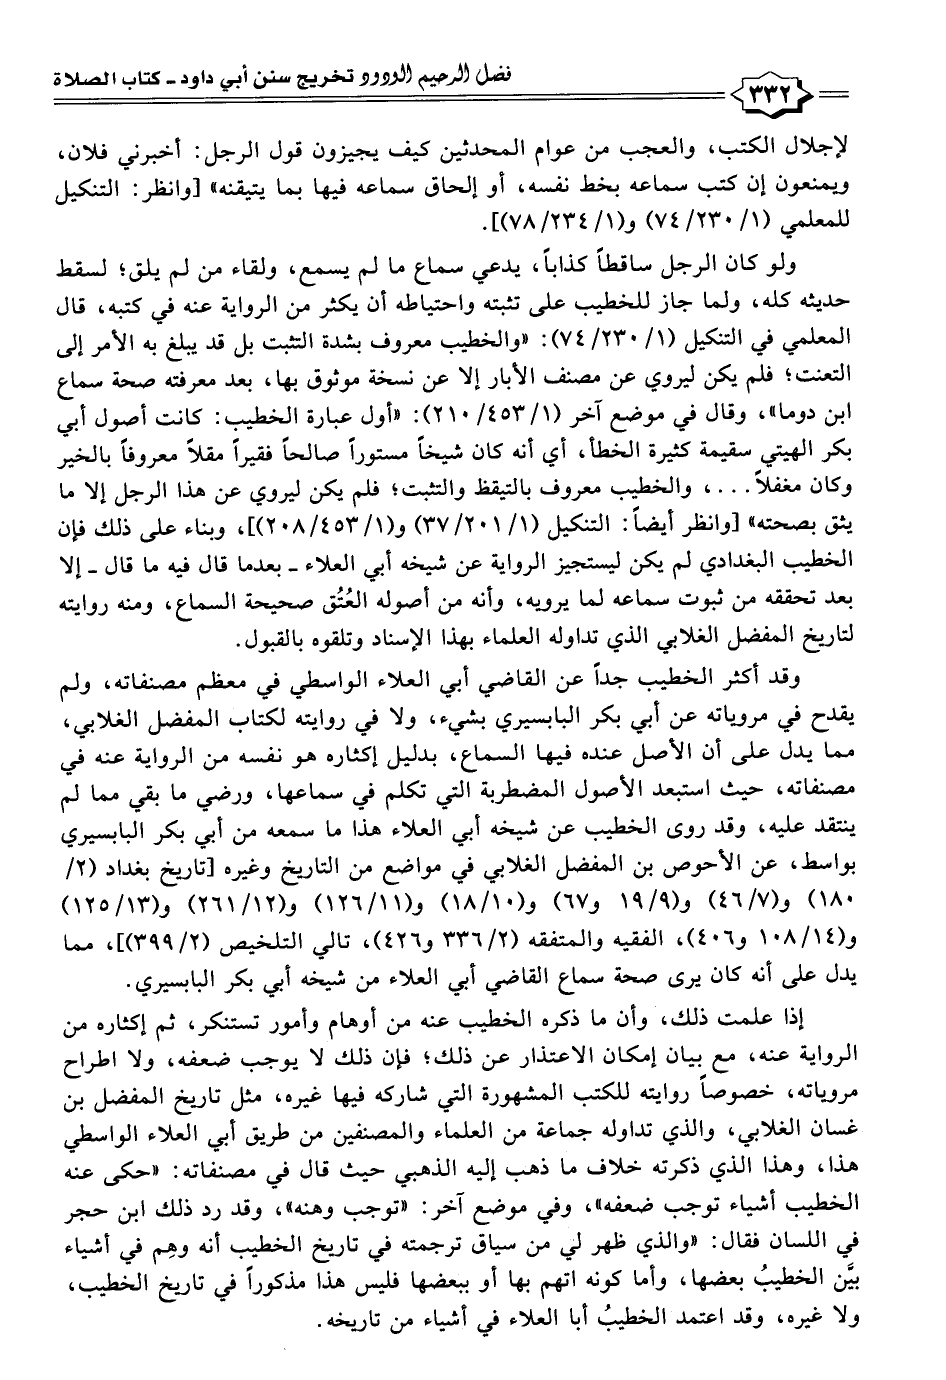 فضل الرحيم الودود تخريج سنن أبي داود - كتاب الصلاة
٣٣٢
لإجلال الكتب، والعجب من عوام المحدثين كيف يجيزون قول الرجل: أخبرني فلان،
ويمنعون إن كتب سماعه بخط نفسه، أو إلحاق سماعه فيها بما يتيقنه» [وانظر: التنكيل
للمعلمي (١/ ٢٣٠/ ٧٤) و(١/ ٢٣٤/ ٧٨)].
ولو كان الرجل ساقطاً كذاباً، يدعي سماع ما لم يسمع، ولقاء من لم يلق؛ لسقط
حديثه كله، ولما جاز للخطيب على تثبته واحتياطه أن يكثر من الرواية عنه في كتبه، قال
المعلمي في التنكيل (١/ ٢٣٠/ ٧٤): «والخطيب معروف بشدة التثبت بل قد يبلغ به الأمر إلى
التعنت؛ فلم يكن ليروي عن مصنف الأبار إلا عن نسخة موثوق بها، بعد معرفته صحة سماع
ابن دوما»، وقال في موضع آخر (١/ ٤٥٣/ ٢١٠): «أول عبارة الخطيب: كانت أصول أبي
بكر الهيتي سقيمة كثيرة الخطأ، أي أنه كان شيخاً مستوراً صالحاً فقيراً مقلاً معروفاً بالخير
وكان مغفلاً ...، والخطيب معروف بالتيقظ والتثبت؛ فلم يكن ليروي عن هذا الرجل إلا ما
يثق بصحته» [وانظر أيضاً: التنكيل (١/ ٢٠١/ ٣٧) و(١/ ٤٥٣/ ٢٠٨)]، وبناء على ذلك فإن
الخطيب البغدادي لم يكن ليستجيز الرواية عن شيخه أبي العلاء - بعدما قال فيه ما قال - إلا
بعد تحققه من ثبوت سماعه لما يرويه، وأنه من أصوله العُتُق صحيحة السماع، ومنه روايته
لتاريخ المفضل الغلابي الذي تداوله العلماء بهذا الإسناد وتلقوه بالقبول.
وقد أكثر الخطيب جداً عن القاضي أبي العلاء الواسطي في معظم مصنفاته، ولم
يقدح في مروياته عن أبي بكر البابسيري بشيء، ولا في روايته لكتاب المفضل الغلابي،
مما يدل على أن الأصل عنده فيها السماع، بدليل إكثاره هو نفسه من الرواية عنه في
مصنفاته، حيث استبعد الأصول المضطربة التي تكلم في سماعها، ورضي ما بقي مما لم
ينتقد عليه، وقد روى الخطيب عن شيخه أبي العلاء هذا ما سمعه من أبي بكر البابسيري
بواسط، عن الأحوص بن المفضل الغلابي في مواضع من التاريخ وغيره [تاريخ بغداد (٢/
١٨٠) و(٧/ ٤٦) و(٩/ ١٩ و٦٧) و(١٠/ ١٨) و(١١/ ١٢٦) و(١٢/ ٢٦١) و(١٣/ ١٢٥)
و(١٤/ ١٠٨ و٤٠٦)، الفقيه والمتفقه (٢/ ٣٣٦ و٤٢٦)، تالي التلخيص (٢/ ٣٩٩)]، مما
يدل على أنه كان يرى صحة سماع القاضي أبي العلاء من شيخه أبي بكر البابسيري.
إذا علمت ذلك، وأن ما ذكره الخطيب عنه من أوهام وأمور تستنكر، ثم إكثاره من
الرواية عنه، مع بيان إمكان الاعتذار عن ذلك؛ فإن ذلك لا يوجب ضعفه، ولا اطراح
مروياته، خصوصاً روايته للكتب المشهورة التي شاركه فيها غيره، مثل تاريخ المفضل بن
غسان الغلابي، والذي تداوله جماعة من العلماء والمصنفين من طريق أبي العلاء الواسطي
هذا، وهذا الذي ذكرته خلاف ما ذهب إليه الذهبي حيث قال في مصنفاته: «حكى عنه
الخطيب أشياء توجب ضعفه»، وفي موضع آخر: «توجب وهنه»، وقد رد ذلك ابن حجر
في اللسان فقال: «والذي ظهر لي من سياق ترجمته في تاريخ الخطيب أنه وهِم في أشياء
بيَّن الخطيبُ بعضها، وأما كونه اتهم بها أو ببعضها فليس هذا مذكوراً في تاريخ الخطيب،
ولا غيره، وقد اعتمد الخطيبُ أبا العلاء في أشياء من تاريخه.